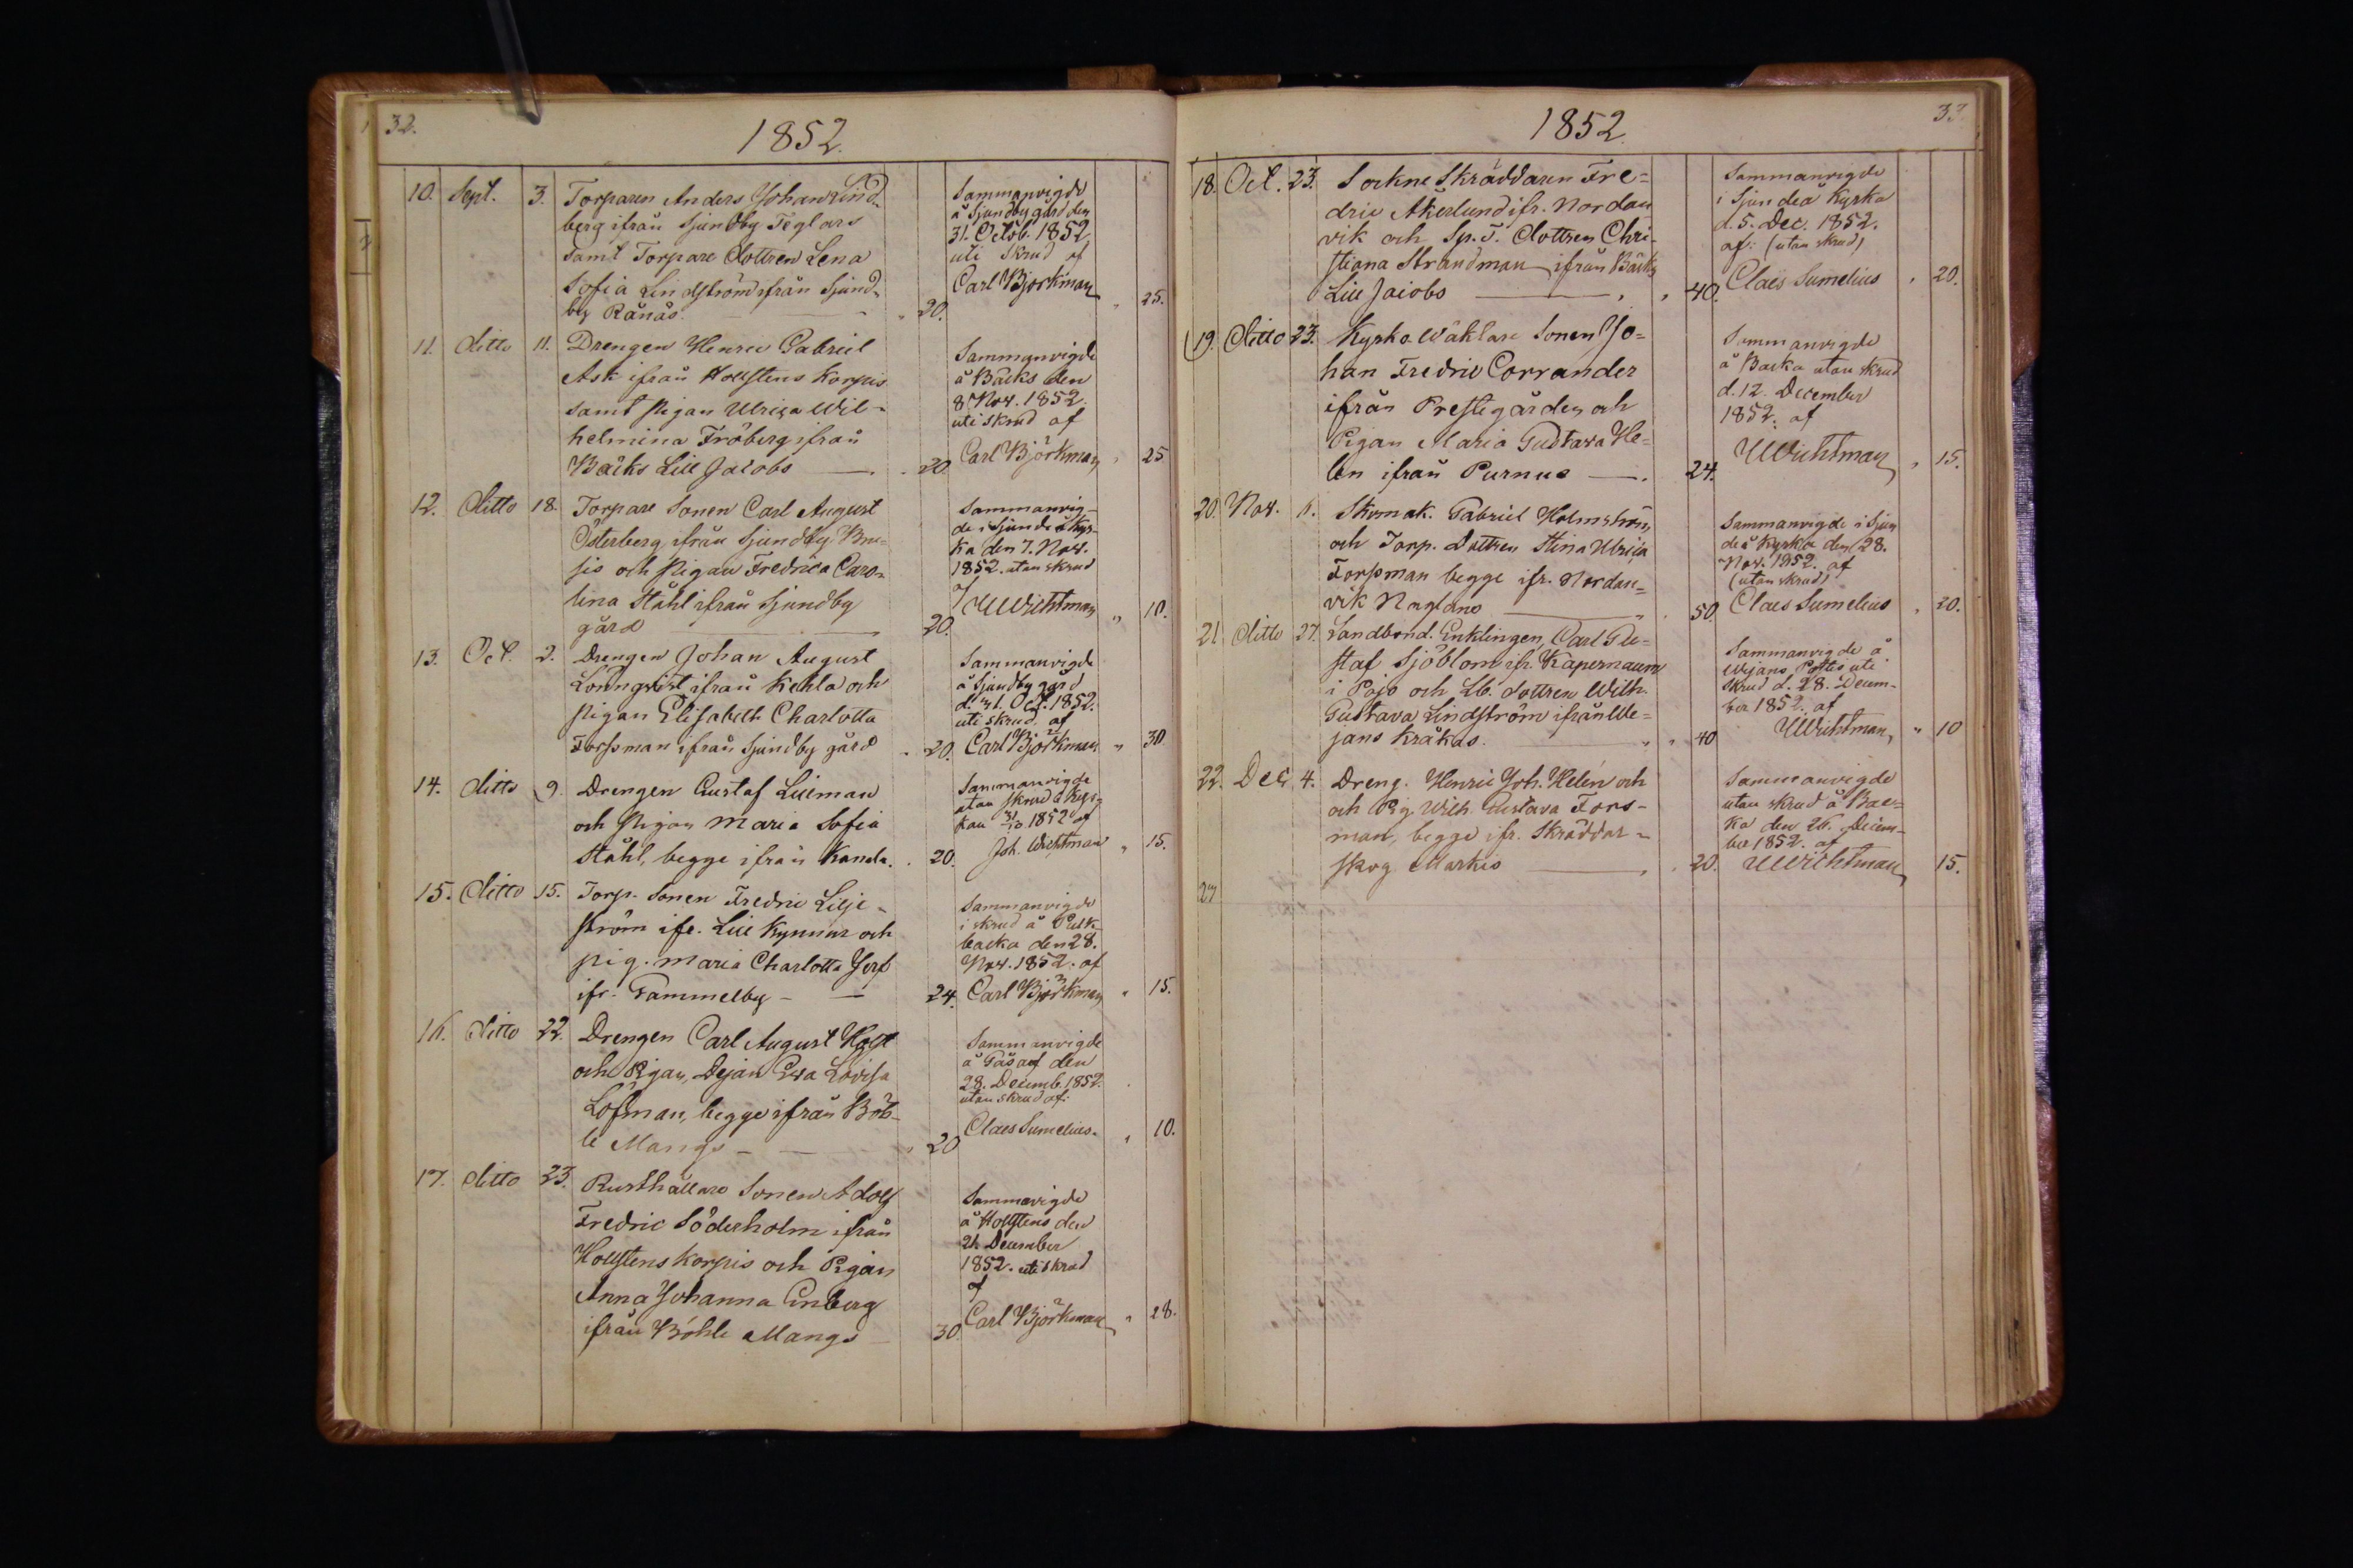 32.
1852.
10. Sept. 3. Torparen Anders Johan Lind-
berg ifrån Sjundby Teglars
samt Torpare Dottren Lena
Sofia Lindström ifrån Sjund-
by Rånäs. 20.
Sammanvigde
å Sjundby gård den
31. Octob. 1852
uti skrud af
Carl Björkman " 25.
11. ditto 11. Drengen Henric Gabriel
Ask ifrån Hollstens Korpis
samt Pigan Ulrica Wil-
helmina Fröberg ifrån
Bäcks Lill Jacobs 20
Sammanvigde
å Bäcks den
8 Nov. 1852.
uti skrud af
Carl Björkman " 25
12. ditto 18. Torpare Sonen Carl August
Österberg, ifrån Sjundby Bru-
sis och Pigan Fredrica Caro-
lina Ståhl ifrån Sjundby
gård 20.
Sammanvig-
de i Sjundeå Kyr-
ka den 7. Nov.
1852. utan skrud
Wichtman " 10.
13. Oct. 2. Drengen Johan August
Lönnqvist ifrån Kehla och
Pigan Elisabeth Charlotta
Forssman ifrån Sjundby gård 20.
Sammanvigde
å Sjundby gård
d. 31. Oct. 1852.
uti skrud. af
Carl Björkman " 30
14. ditto 9. Drengen Gustaf Lilleman
och Pigan Maria Sofia
Ståhl, begge ifrån Kanala. 20.
Sammanvigde
utan skrud å
31/10 1852 af
Joh. Wichtman " 15.
15. ditto 15. Torp. Sonen Fredric Lilje-
ström ifr. Lill Kynnar och
pig. Maria Charlotta Jerf
ifr. Gammelby - — 24.
Sammanvigde
i skrud å
backa den 28.
Nov. 1852. af
Carl Björkman " 15.
16. ditto 22. Drengen Carl August Holst
och Pigan, Dejan Eva Lovisa
Löfman, begge ifrån Böh-
le Mangs - — 20
Sammanvigde
å den
28. Decemb. 1852.
utan skrud af:
Claes Sumelius. " 10.
17. ditto 23. Rusthållare Sonen Adolf
Fredric Söderholm ifrån
Hollstens Korpis och Pigan
Anna Johanna Enberg
ifrån Böhle Mangs — 30.
Sammavigde
å Hollstens den
21 December
1852. uti skrud
af
Carl Björkman " 28.
33.
1852
18. Oct. 23. Sockne Skräddaren Fre-
dric Åkerlund ifr. Nordan
vik och Sp. T. Dottren Chri-
stiana Strandman ifrån Bäcks
Lill Jacobs 40.
Sammanvigde
i Sjundeå Kyrka
d. 5. Dec. 1852.
af: (utan skrud)
Claës Sumelius " 20.
19. ditto 23. Kyrko Wäktare Sonen Jo-
han Fredric Corrander
ifrån Prestegården och
Pigan Maria Gustava He-
len ifrån Purnus —. 24.
Sammanvigde
å Backa utan skrud
d. 12. December
1852. af
Wichtman " 15.
20. Nov. 6. Skomak. Gabriel Holmström
och Torp. Dottren Stina Ulrica
Forssman begge ifr. Nordan-
vik Nygland 50.
Sammanvigde i Sjun
deå Kyrka den 28.
Nov. 1852. af
(utan skrud)
Claes Sumelius " 20.
21. ditto 27. Landbond. Enklingen, Carl Gu-
staf Sjöblom ifr. Kapernaum
i Pojo och Lb. dottren Wilh.
Gustava Lindström ifrån We-
jans Kråkas. 40
Sammanvigde å
Wejans uti
skrud d. 28. Decem-
ber 1852. af
Wichtman, " 10
22. Dec. 4. Dreng. Henric Joh. Helén och
och Pig Wilh. Gustava Fors-
man, begge ifr. Skräddar-
skog Markis 20.
Sammanvigde
utan skrud å Bac-
ka den 26. Decem-
ber 1852. af
Wichtman 15.